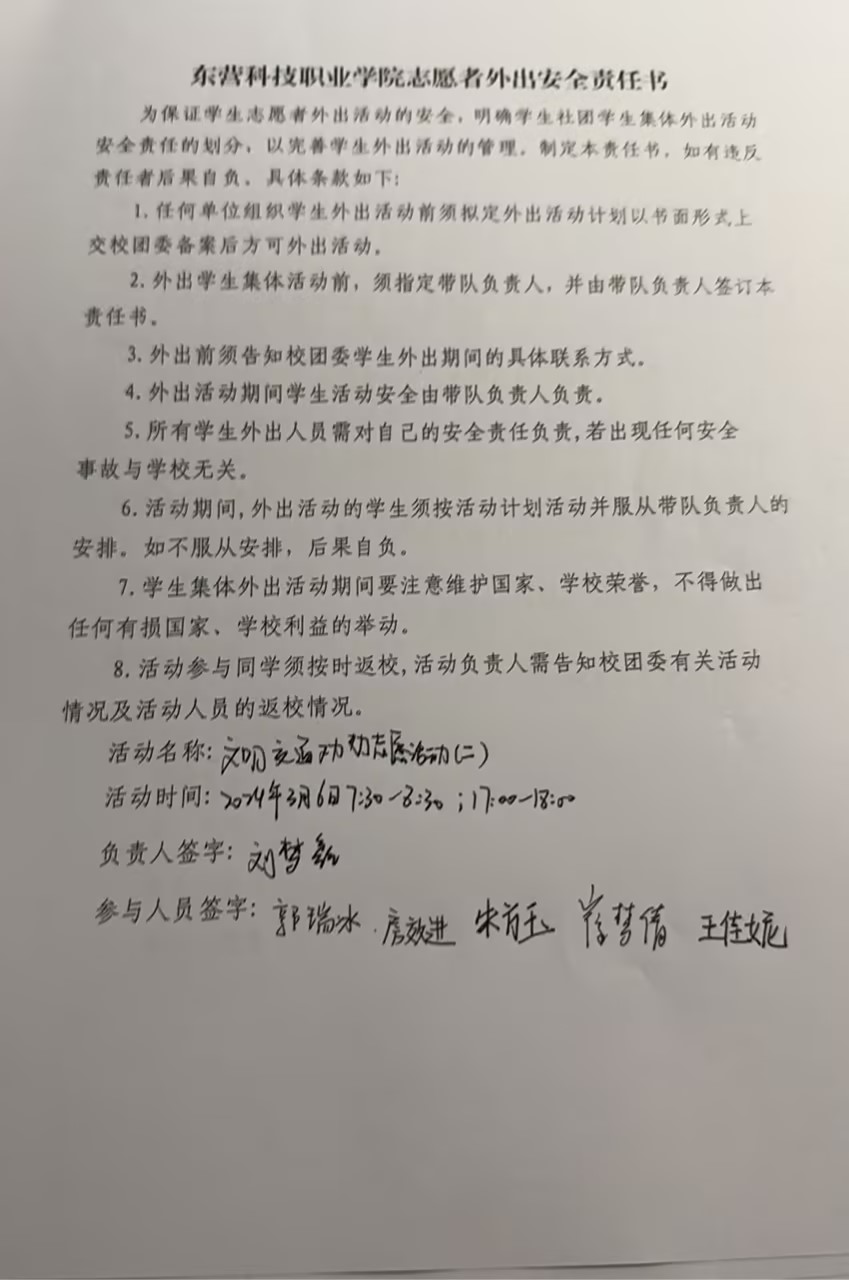 东营科技职业学院志愿者外出安全责任书
为保证学生志愿者外出活动的安全，明确学生社团学生集体外出活动
安全责任的划分，以完善学生外出活动的管理。制定本责任书，如有违反
责任者后果自负。具体条款如下：
1.任何单位组织学生外出活动前须拟定外出活动计划以书面形式上
交校团委备案后方可外出活动。
2.外出学生集体活动前，须指定带队负责人，并由带队负责人签订本
责任书。
3.外出前须告知校团委学生外出期间的具体联系方式。
4.外出活动期间学生活动安全由带队负责人负责。
5.所有学生外出人员需对自己的安全责任负责,若出现任何安全
事故与学校无关。
6.活动期间,外出活动的学生须按活动计划活动并服从带队负责人的
安排。如不服从安排，后果自负。
7.学生集体外出活动期间要注意维护国家、学校荣誉，不得做出
任何有损国家、学校利益的举动。
8.活动参与同学须按时返校,活动负责人需告知校团委有关活动
情况及活动人员的返校情况。
活动名称：文明交通劝导志愿活动(二)
活动时间：2024年3月6日7:30-8:30；17:00-18:00
负责人签字：刘梦
参与人员签字：郭瑞冰 房效进 朱 玉 崔梦倩 王佳妮